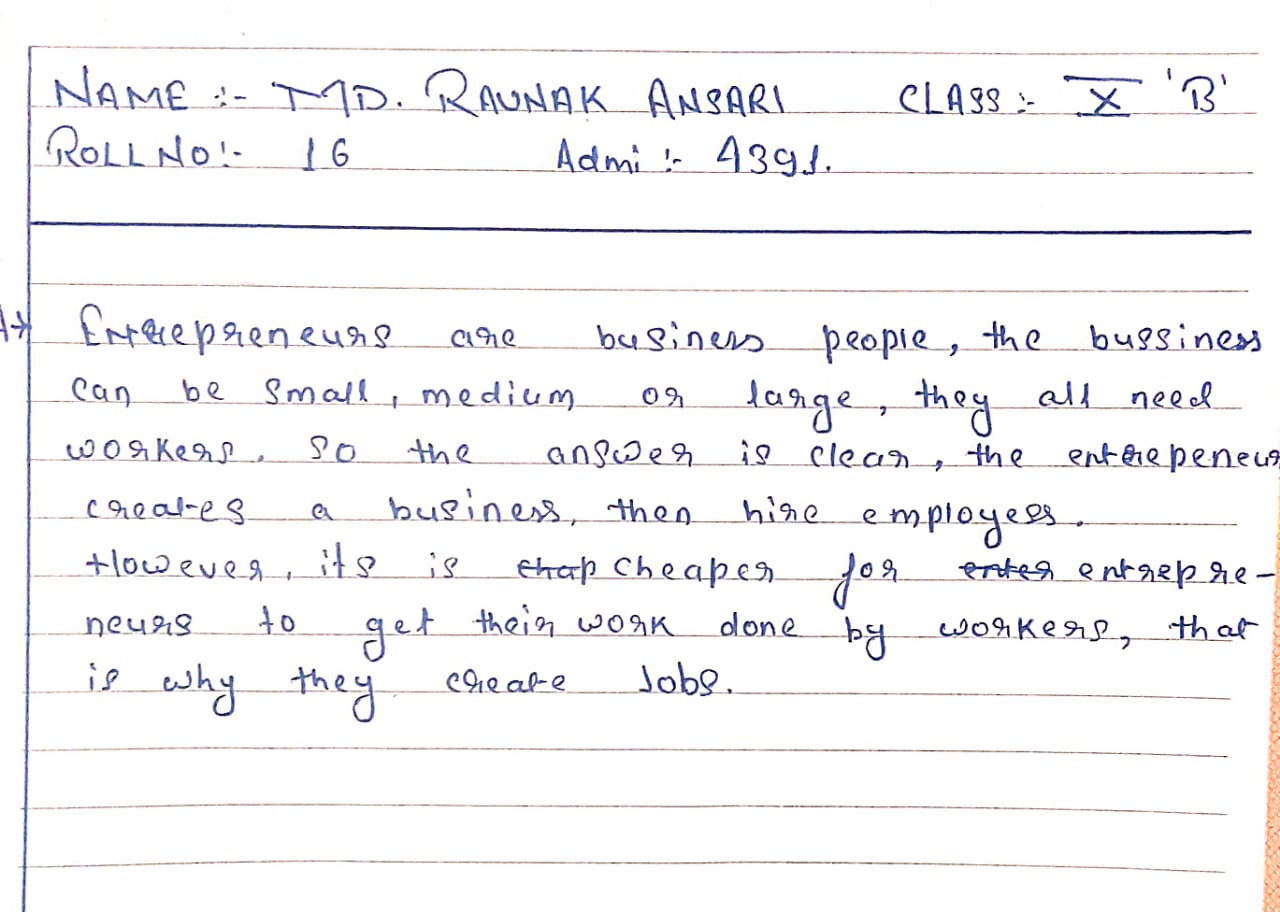 NAME :- MD. RAUNAK ANSARI CLASS :- X 'B'
ROLL NO :- 16 Admi :- 4391.
A→ Entrepreneurs are business people, the bussiness
can be small, medium or large, they all need
workers. So the answer is clear, the entrepeneur
creates a business, then hire employees.
However, its is chap cheaper for enter entrepre-
neurs to get their work done by workers, that
is why they create Jobs.